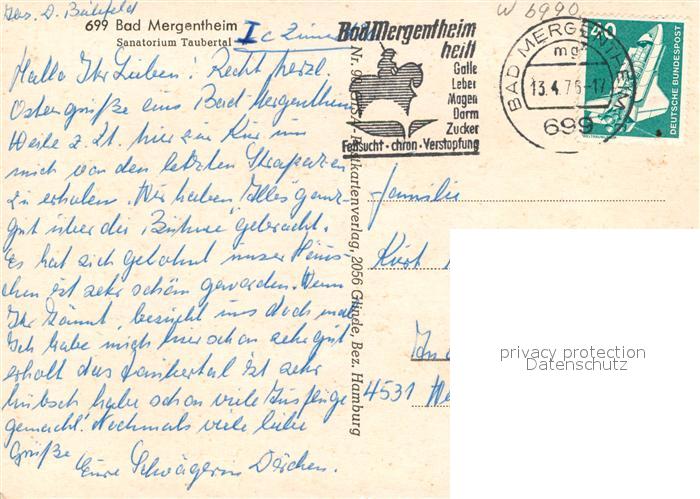 699 Bad Mergentheim
Sanatorium Taubertal
I c Zimmer
Hallo Ihr Lieben! Recht herzl.
Ostergrüße aus Bad-Mergentheim
Weile z. Zt. hier zur Kur um
mich von den letzten Strapazen
zu erholen. Wir haben Alles ganz
gut über die Bühne gebracht.
Es hat sich gelohnt unser Häus-
chen ist sehr schön geworden. Wenn
Ihr könnt, besucht uns doch mal
Ich habe mich hier schon sehr gut
erholt das Taubertal ist sehr
hübsch habe schon viele Ausflüge
gemacht. Nochmals viele liebe
Grüße
Eure Schwägerin Dörchen.
Bad Mergentheim
heilt
Galle
Leber
Magen
Darm
Zucker
Fettsucht · chron · Verstopfung
W 6990
BAD MERGENTHEIM
mg
13.4.76-17
699
40
DEUTSCHE BUNDESPOST
Postkartenverlag, 2056 Glinde, Bez. Hamburg
Familie
Kurt
4531
privacy protection
Datenschutz